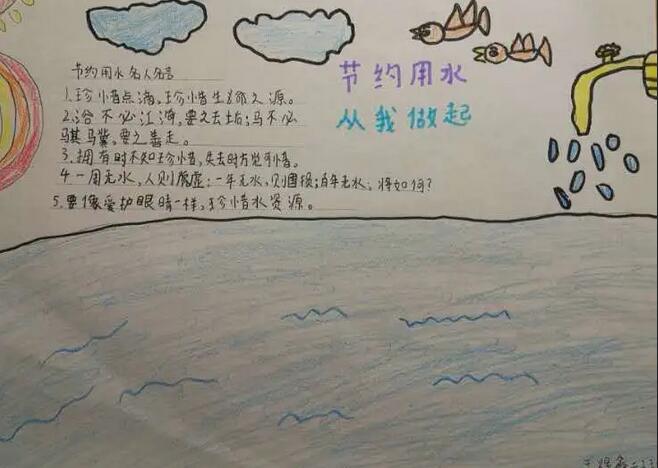 节约用水名人名言
1.珍惜点滴，珍惜生命之源。
2.浴不必江海，要之去垢；马不必
骐骥，要之善走。
3.拥有时不知珍惜，失去时方觉可惜。
4一周无水，人则虚；一年无水，则国损；百年无水，将如何？
5.要像爱护眼睛一样，珍惜水资源。
节约用水
从我做起